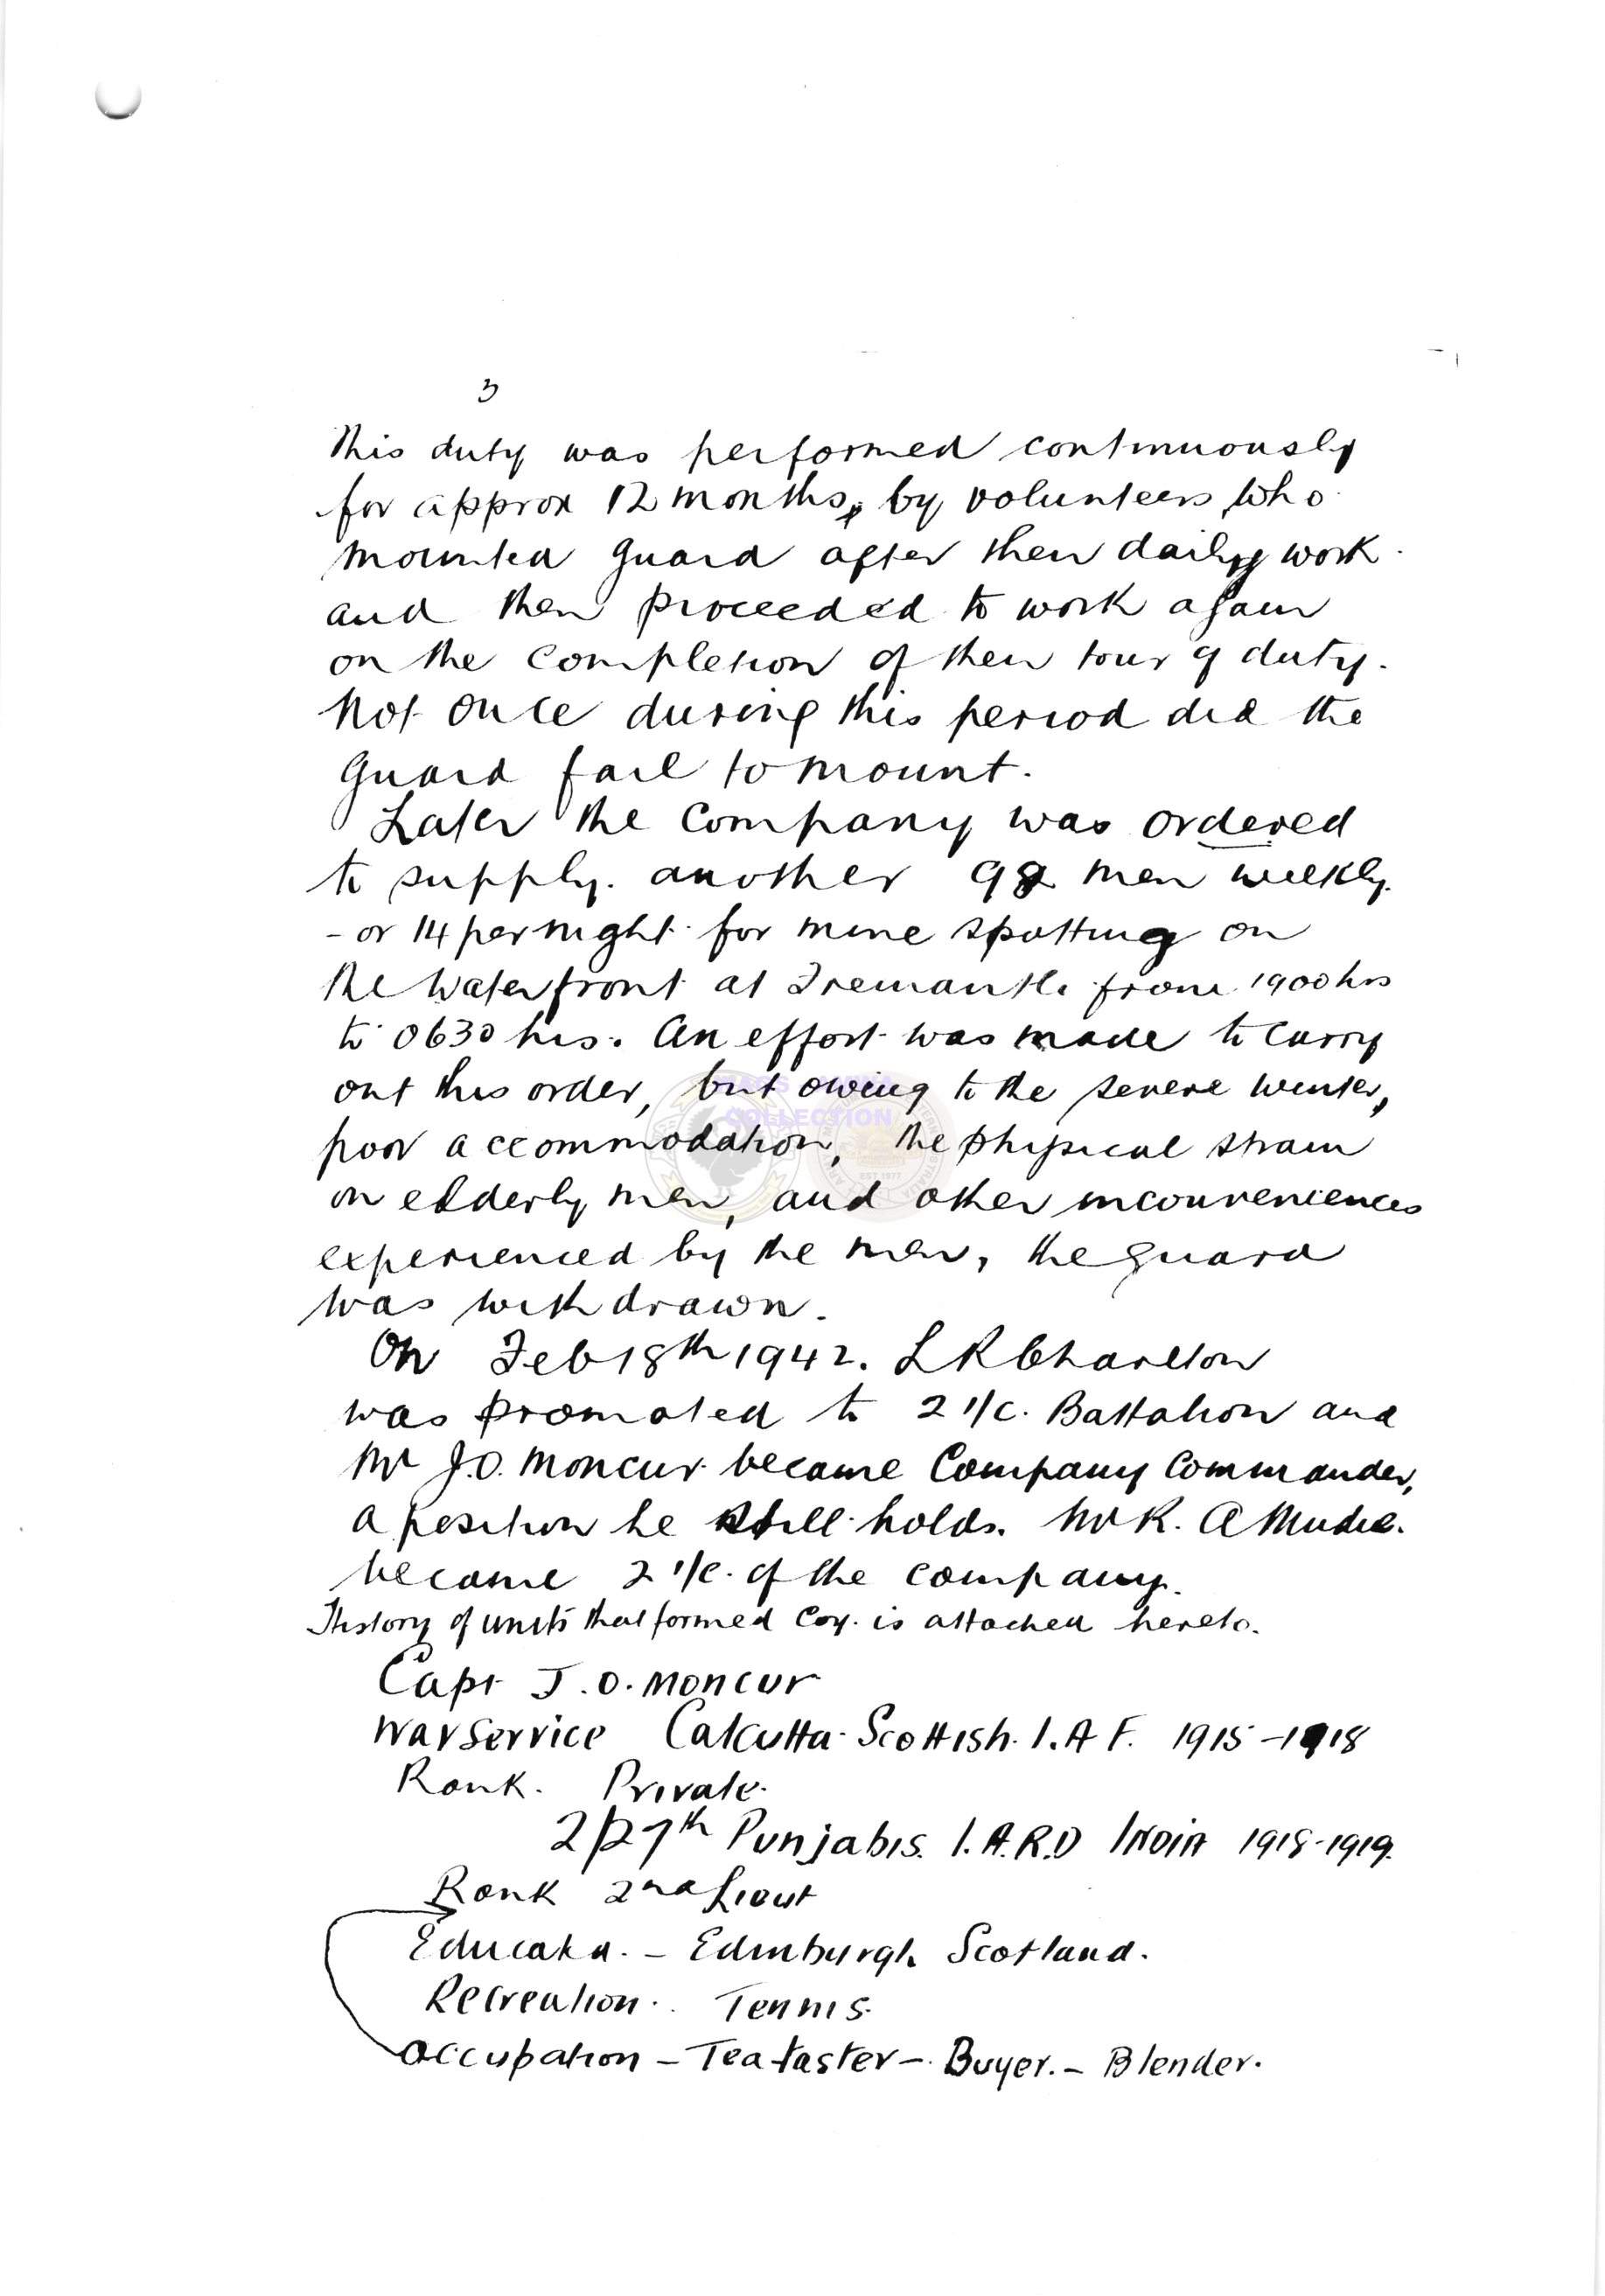 3
This duty was performed continuously
for approx 12 months, by volunteers who
mounted guard after their daily work
and then proceeded to work again
on the completion of their tour of duty.
Not once during this period did the
Guard fail to mount.
Later the Company was ordered
to supply another 98 men weekly
- or 14 per night for mine spotting on
the Waterfront at Fremantle from 1900 hrs
to 0630 hrs. An effort was made to carry
out this order, but owing to the severe winter,
poor accommodation, the physical strain
on elderly men, and other inconveniences
experienced by the men, the guard
was withdrawn.
On Feb 18th 1942. L R Charlton
was promoted to 2 I/C. Battalion and
Mr J.O. Moncur became Company Commander,
a position he still holds. Mr R. A Mudie.
became 2 I/C. of the company.
History of units that formed Coy. is attached hereto.
Capt J.O. Moncur
War Service Calcutta Scottish. I.A F. 1915-1918
Rank. Private.
2/27th Punjabis. I.A.R.O INDIA 1918-1919.
Rank 2nd Lieut
Educated. - Edinburgh Scotland.
Recreation. Tennis.
Occupation - Tea taster - Buyer. - Blender.
COLLECTION